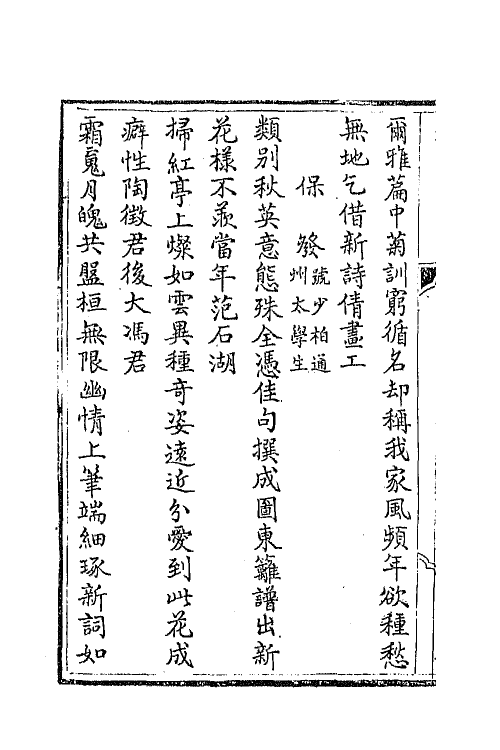 爾雅篇中菊訓窮循名却稱我家風頻年欲種愁
無地乞借新詩倩畫工
保發號少柏通
州太學生
類別秋英意態殊全憑佳句撰成圖東籬譜出新
花樣不羨當年范石湖
掃紅亭上燦如雲異種奇姿遠近分愛到此花成
癖性陶徵君後大馮君
霜䰟月魄共盤桓無限幽情上筆端細琢新詞如